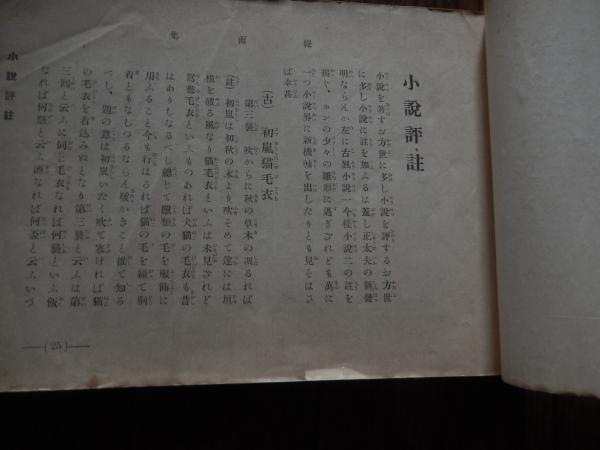 緑雨集
小說評註
小說を著すお方世に多し小說を評するお方世
に多し小說に註を加ふるは蓋し正太夫の新發
明ならんか左に古風小說一今樣小說二の註を
揭ぐ、ホンの少々の雛形に過ぎざれども萬に
一つ小說界に新機軸を出したりとも見そはさ
ば幸甚
(古) 初嵐猫毛衣
第三襲 吹からに秋の草木の凋るれば
(註) 初嵐は初秋の末より吹そめて遂には垣
根を破る風なり猫毛衣といふは未見ざれど
鴛鴦毛衣といふものあれば犬猫の毛衣も昔
はありしなるべし總じて獸類の毛を服飾に
用ふること今も行はるれば猫の毛を績て胴
着ともなしつるならん暖かきこと推て知る
べし、題の意は初嵐いたく吹て寒ければ猫
の毛衣を着込みぬとなり第三襲と云ふは第
三回と云ふに同じ毛衣なれば何襲といふ飯
なれば何膳と云ふ酒なれば何盃と云ふいづ
小說評註
(25)